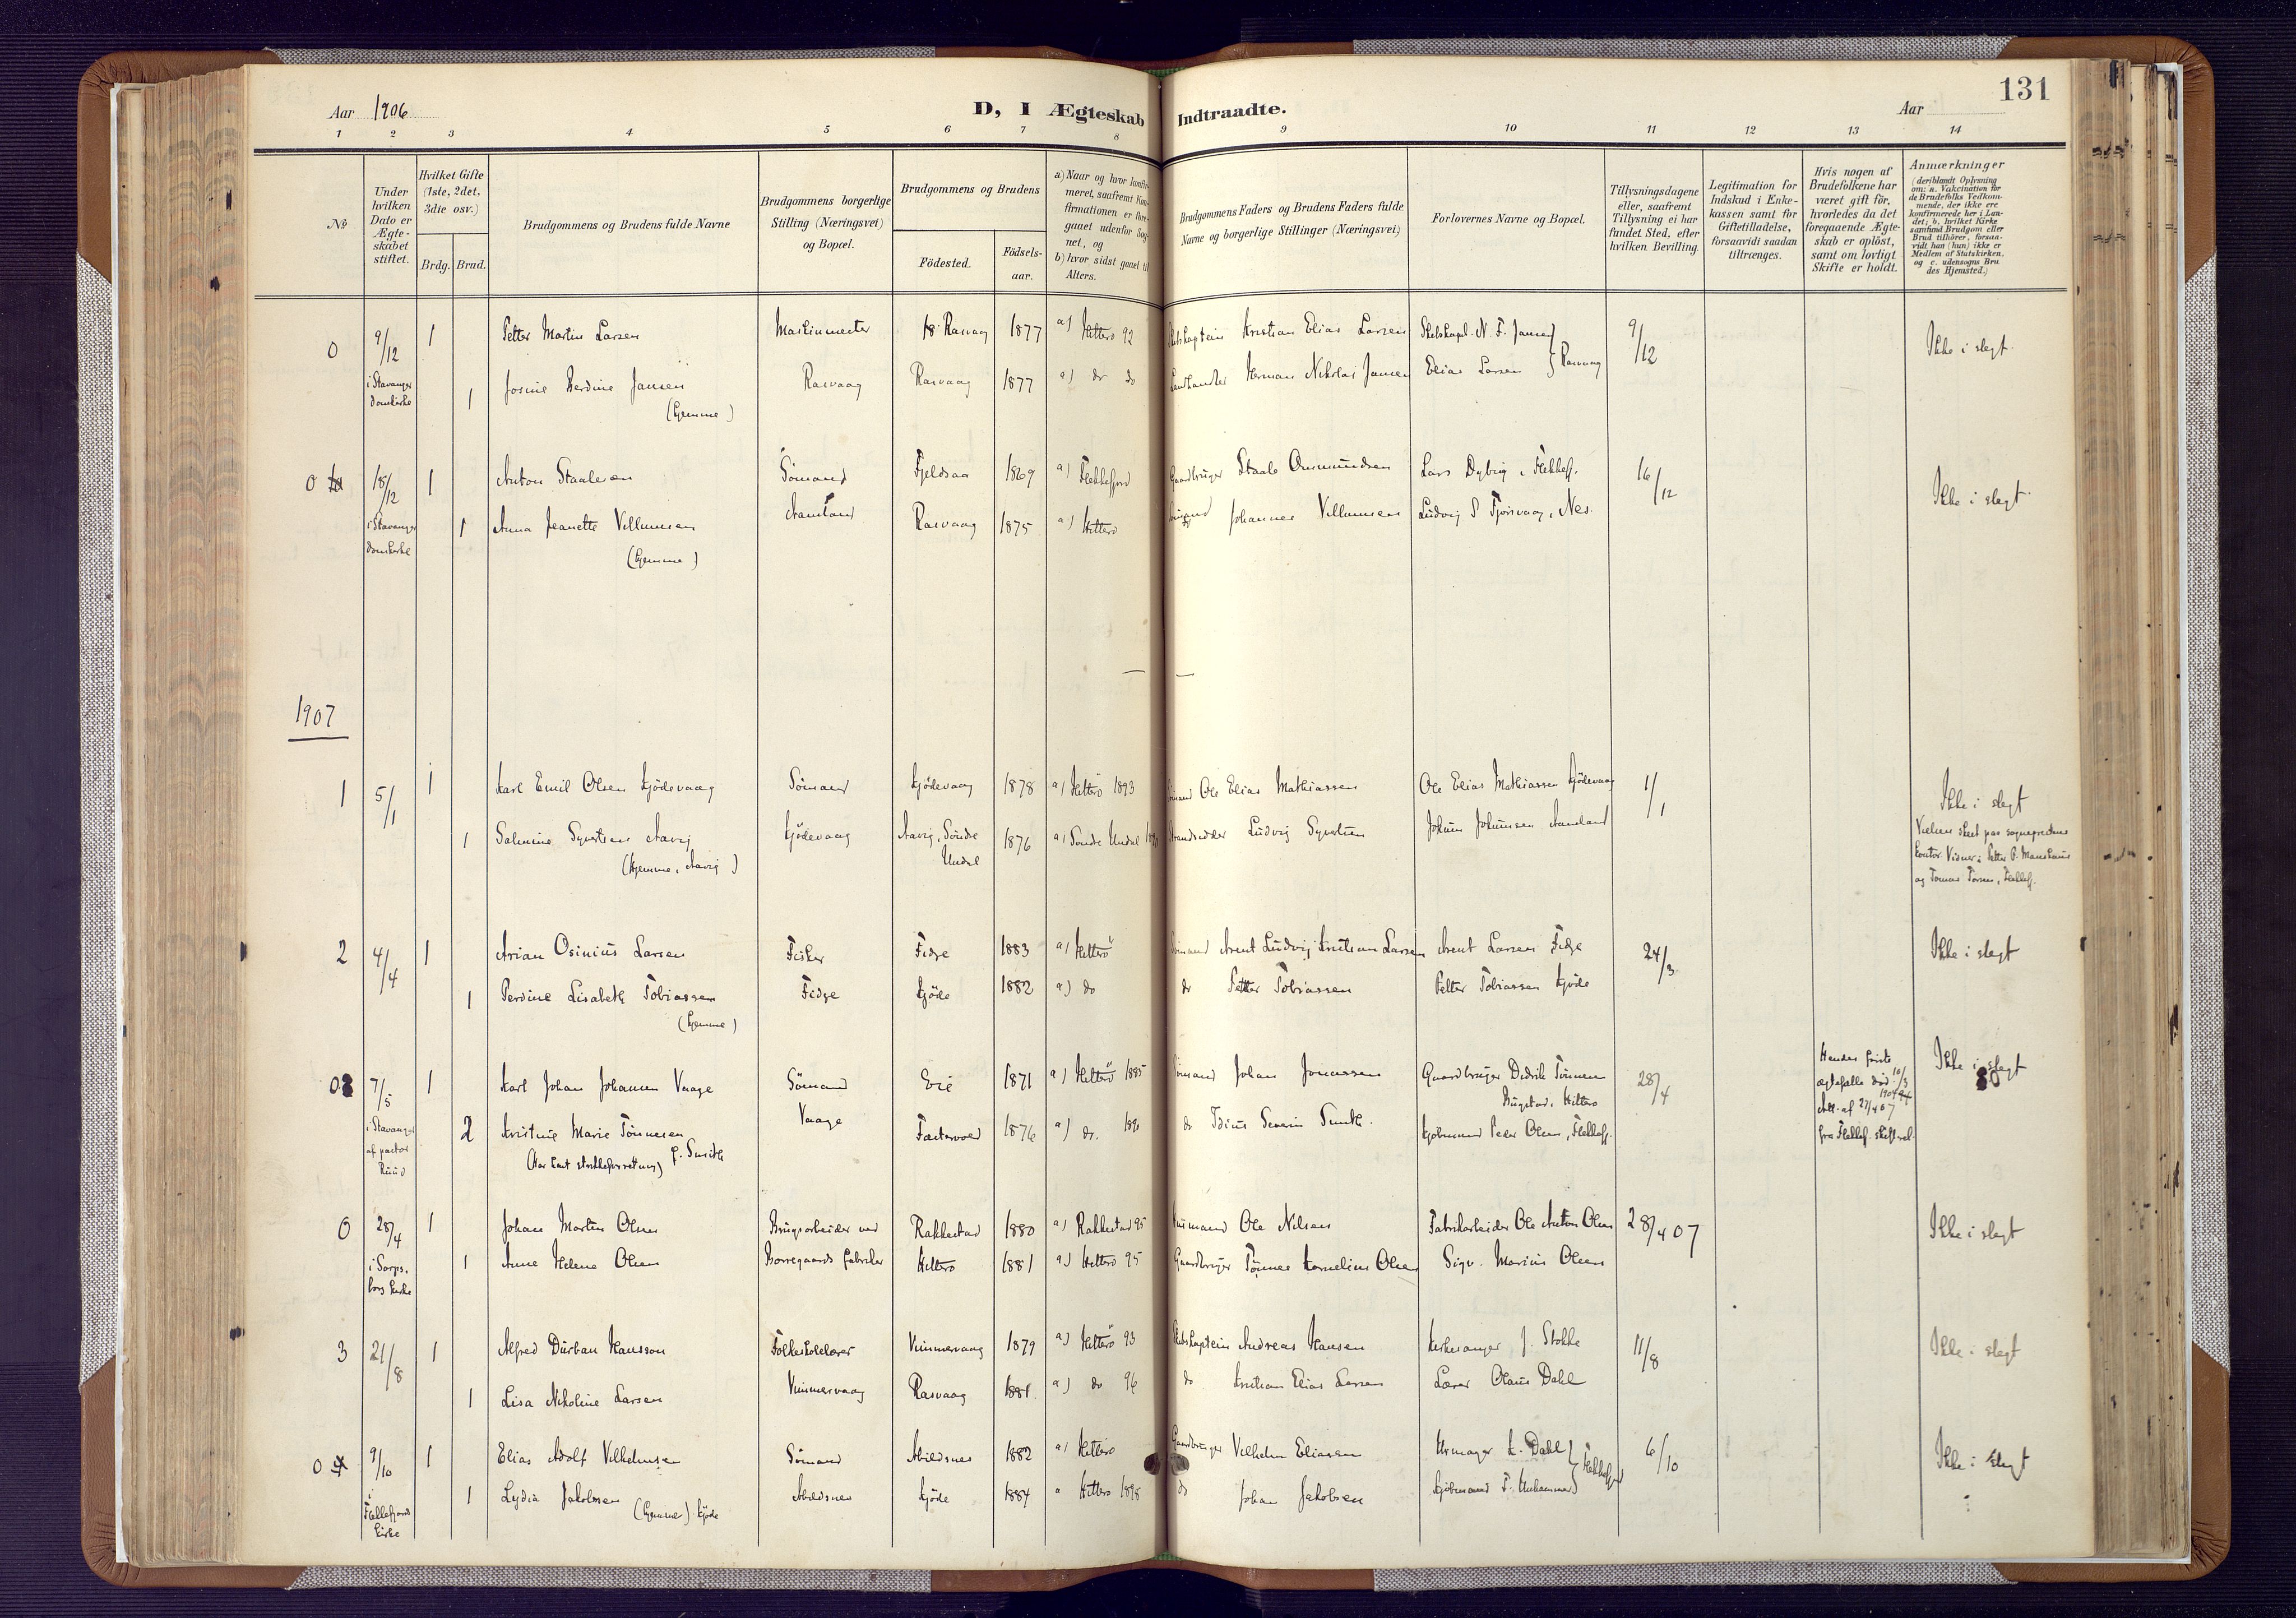 131
Aar 1906
D, I Ægteskab Indtraadte.
Aar
1 2 3 4 5 6 7 8 9 10 11 12 13 14
No
Under hvilken Dato er Ægteskabet stiftet.
Hvilket Gifte (1ste, 2det, 3die osv.)
Brdg. Brud.
Brudgommens og Brudens fulde Navne
Brudgommens borgerlige Stilling (Næringsvei) og Bopæl.
Brudgommens og Brudens
Fødested.
Fødselsaar.
a) Naar og hvor konfirmeret, saafremt Konfirmationen er foregaaet udenfor Sognet, og
b) hvor sidst gaaet til Alters.
Brudgommens Faders og Brudens Faders fulde Navne og borgerlige Stillinger (Næringsvei)
Forlovernes Navne og Bopæl.
Tillysningsdagene eller, saafremt Tillysning ei har fundet Sted, efter hvilken Bevilling.
Legitimation for Indskud i Enkekassen samt for Giftetilladelse, forsaavidt saadan tiltrænges.
Hvis nogen af Brudefolkene har været gift før, hvorledes da det foregaaende Ægteskab er opløst, samt om lovligt Skifte er holdt.
Anmærkninger
(deriblandt Oplysning om: a. Vakcination for de Brudefolks Vedkommende, der ikke ere konfirmerede her i Landet; b. hvilket Kirkesamfund Brudgom eller Brud tilhører, forsaavidt han (hun) ikke er Medlem af Statskirken, og c. udensogns Brudes Hjemsted.)
0 9/12 1 Petter Martin Larsen Maskinmester Rasvaag 1877 a) Hitterø 92 Skibskaptein Kristian Elias Larsen Skibskapt. N. F. Jansen 9/12 Ikke i slegt.
i Stavanger domkirke 1 Josine Berdine Jansen Rasvaag Rasvaag 1877 a) do do Landhandler Herman Nikolai Jansen Elias Larsen Rasvaag
(hjemme)
0 18/12 1 Anton Staalesen Sømand Fjeldsaa 1869 a) Flekkefjord Gaardbruger Staale Osmundsen Lars Dybvig, Flekkefj. 16/12 Ikke i slegt.
i Stavanger domkirke 1 Anna Jeanette Villumsen Aamland Rasvaag 1875 a) Hitterø Johannes Villumsen Ludvig S Fjørsvaag, Nes.
(hjemme)
1907
1 5/1 1 Karl Emil Olsen Kjødevaag Sømand Kjødevaag 1878 a) Hitterø 1893 Sømand Ole Elias Mathiassen Ole Elias Mathiassen Kjødevaag 1/1 Ikke i slegt
1 Salmine Syvertsen Aavig Kjødevaag Aavig, Søndre Undal 1876 a) Søndre Undal Strandsidder Ludvig Syvertsen Johan Johansen Aamland
(hjemme, Aavig)
Vielsen skeet paa sogneprestens
kontor. Vidner: Petter P. Manshaus
og Tomas Torsen, Flekkefj.
2 4/4 1 Arian Osinius Larsen Fisker Fidje 1883 a) Hitterø Sømand Arent Ludvig Kristian Larsen Arent Larsen Fidje 24/3 Ikke i slegt
1 Perdine Lisabeth Tobiassen Fidje Kjøde 1882 a) do do Petter Tobiassen Petter Tobiassen Kjøde
(hjemme)
0 7/5 1 Karl Johan Johansen Vaage Sømand Eie 1871 a) Hitterø 1885 Sømand Johan Jonassen Gaardbruger Didrik Tønnesen 28/4 Ikke i slegt
Bugstad, Hitterø
i Stavanger af pastor Ruud 2 Kristine Marie Tønnesen Vaage 1876 a) do. 1890 do Idius Severin Smith. Kjøbmand Peder Olsen, Flekkefj.
f. Smith
Hendes første
ægtefælle død 10/3
1904
Att. af 27/4 07
fra Flekkef. skifteret
0 28/4 1 Johan Martin Olsen Brugsarbeider ved Rakkestad 1880 a) Rakkestad 95 Husmand Ole Nilsen Fabrikarbeider Ole Anton Olsen 28/4 07 Ikke i slegt
i Sarpsborg kirke 1 Anne Helene Olsen Borregaards fabriker Hitterø 1881 a) Hitterø 95 Gaardbruger Tønnes Kornelius Olsen Sigv. Marius Olsen
3 21/8 1 Alfred Durban Hansson Folkeskolelærer Vinmersvaag 1879 a) Hitterø 93 Skibskaptein Andreas Hansen Kirkesanger J. Stokke 11/8 Ikke i slegt
1 Lisa Nikoline Larsen Vinmersvaag Rasvaag 1881 a) do 96 do Kristian Elias Larsen Lærer Olaus Dahl
0 9/10 1 Elias Adolf Vilhelmsen Sømand Abildsnes 1882 a) Hitterø Gaardbruger Vilhelm Eliassen Urmager K. Dahl 6/10 Ikke i slegt
i Flekkefjord kirke 1 Lydia Jakobsen (hjemme) Kjøde Abildsnes Kjøde 1884 a Hitterø 1898 do Johan Jakobsen Kjøbmand Flekkefjord